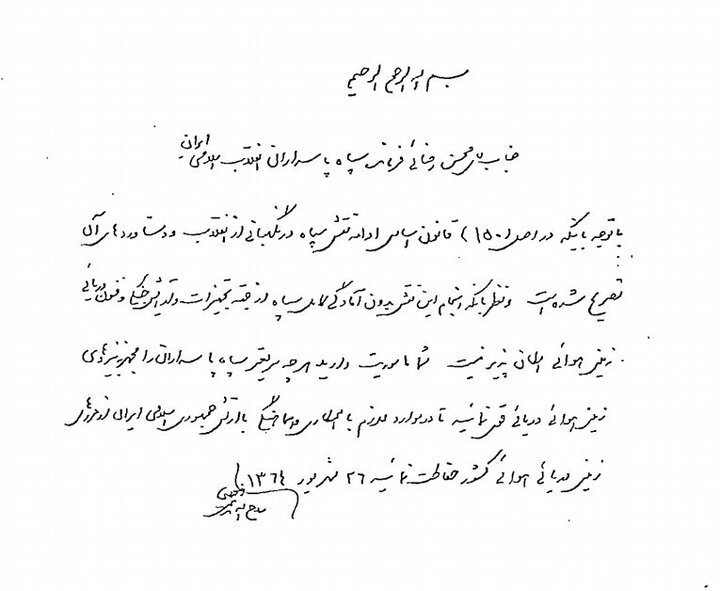 بسم الله الرحمن الرحیم
جناب آقای محسن رضائی فرمانده سپاه پاسداران انقلاب اسلامی ایران
با توجه باینکه در اصل (۱۵۰) قانون اساسی ادامه نقش سپاه در نگهبانی از انقلاب و دستاوردهای آن
تصریح شده است و نظر باینکه انجام این نقش بدون آمادگی کامل سپاه از جهت تجهیزات و فنون دریائی
زمینی هوائی امکان پذیر نیست شما ماموریت دارید هر چه سریعتر سپاه پاسداران را مجهز به نیروهای
زمینی هوائی دریائی قوی نمائید تا در موارد لازم با همکاری و هماهنگی با ارتش جمهوری اسلامی ایران از مرزهای
زمینی دریائی هوائی کشور حفاظت نمائید ۲۶ شهریور ۱۳۶۴
روح الله